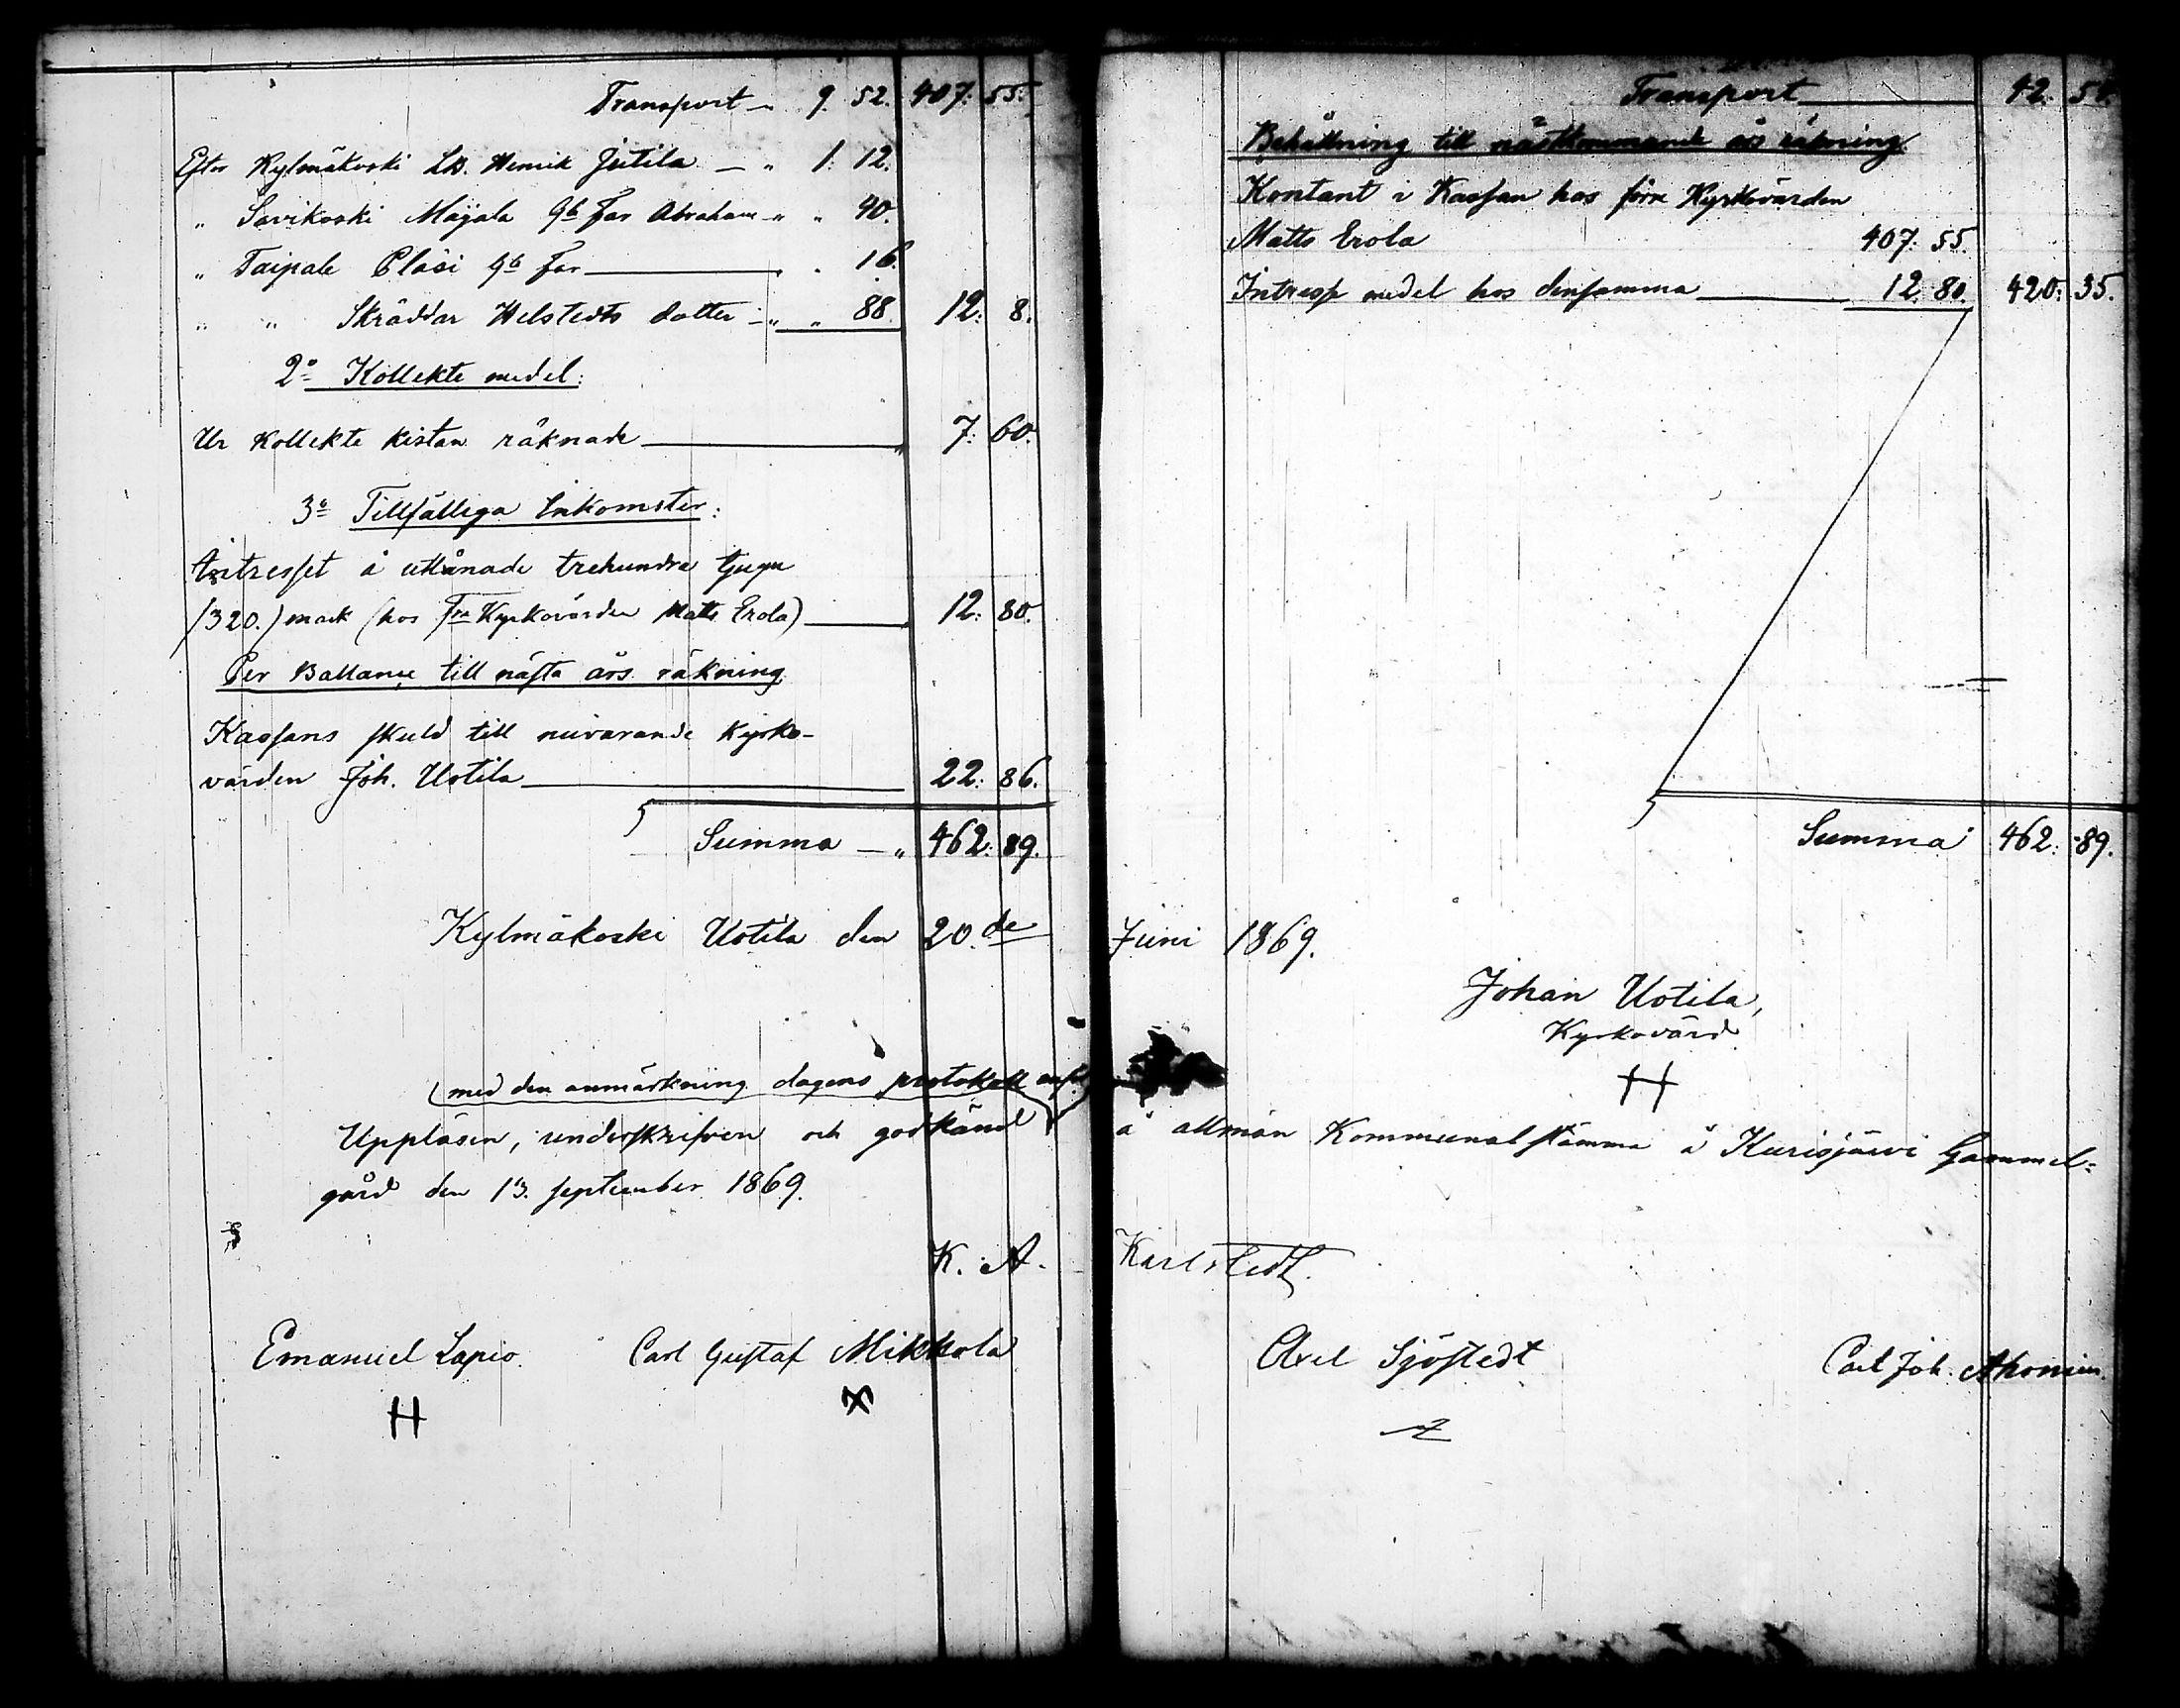 Transport — 9. 52. 407: 55.
Efter Kylmäkoski Ld. Henrik Jutila — " 1. 12.
" Savikoski Maijala gb far Abraham " " 40.
" Taipale Pläsi gb far — " 16.
" " Skräddar Helstedts dotter — " " 88. 12: 8.
2o Kollekte medel:
Ur Kollekte kistan räknade — 7: 60.
3o Tillfälliga Inkomster:
Intresset å utlånade trehundra tjugu
/320./ mark (hos Fre Kyrkovärden Matts Erola) — 12: 80.
Per Ballance till nästa års räkning
Kassans skuld till nuvarande Kyrko-
värden Joh. Uotila — 22: 86.
Summa — " 462: 89.
Kylmäkoski Uotila den 20.de Juni 1869.
Transport — 42: 54.
Behållning till nästkommande års räkning
Kontant i Kassan hos förre Kyrkovärden
Matts Erola 407: 55.
Intresse medel hos densamma — 12. 80. 420: 35.
Summa 462: 89.
Johan Uotila,
Kyrkovärd
(med den anmärkning dagens protokoll
Uppläsen, underskrifven och godkänd å allmän Kommunalstämma å Kurisjärvi Gammel-
gård den 13. september 1869.
K. A. Karlstedt.
Emanuel Lapio. Carl Gustaf Mikkola Axel Sjöstedt Carl Joh. Ahonen.